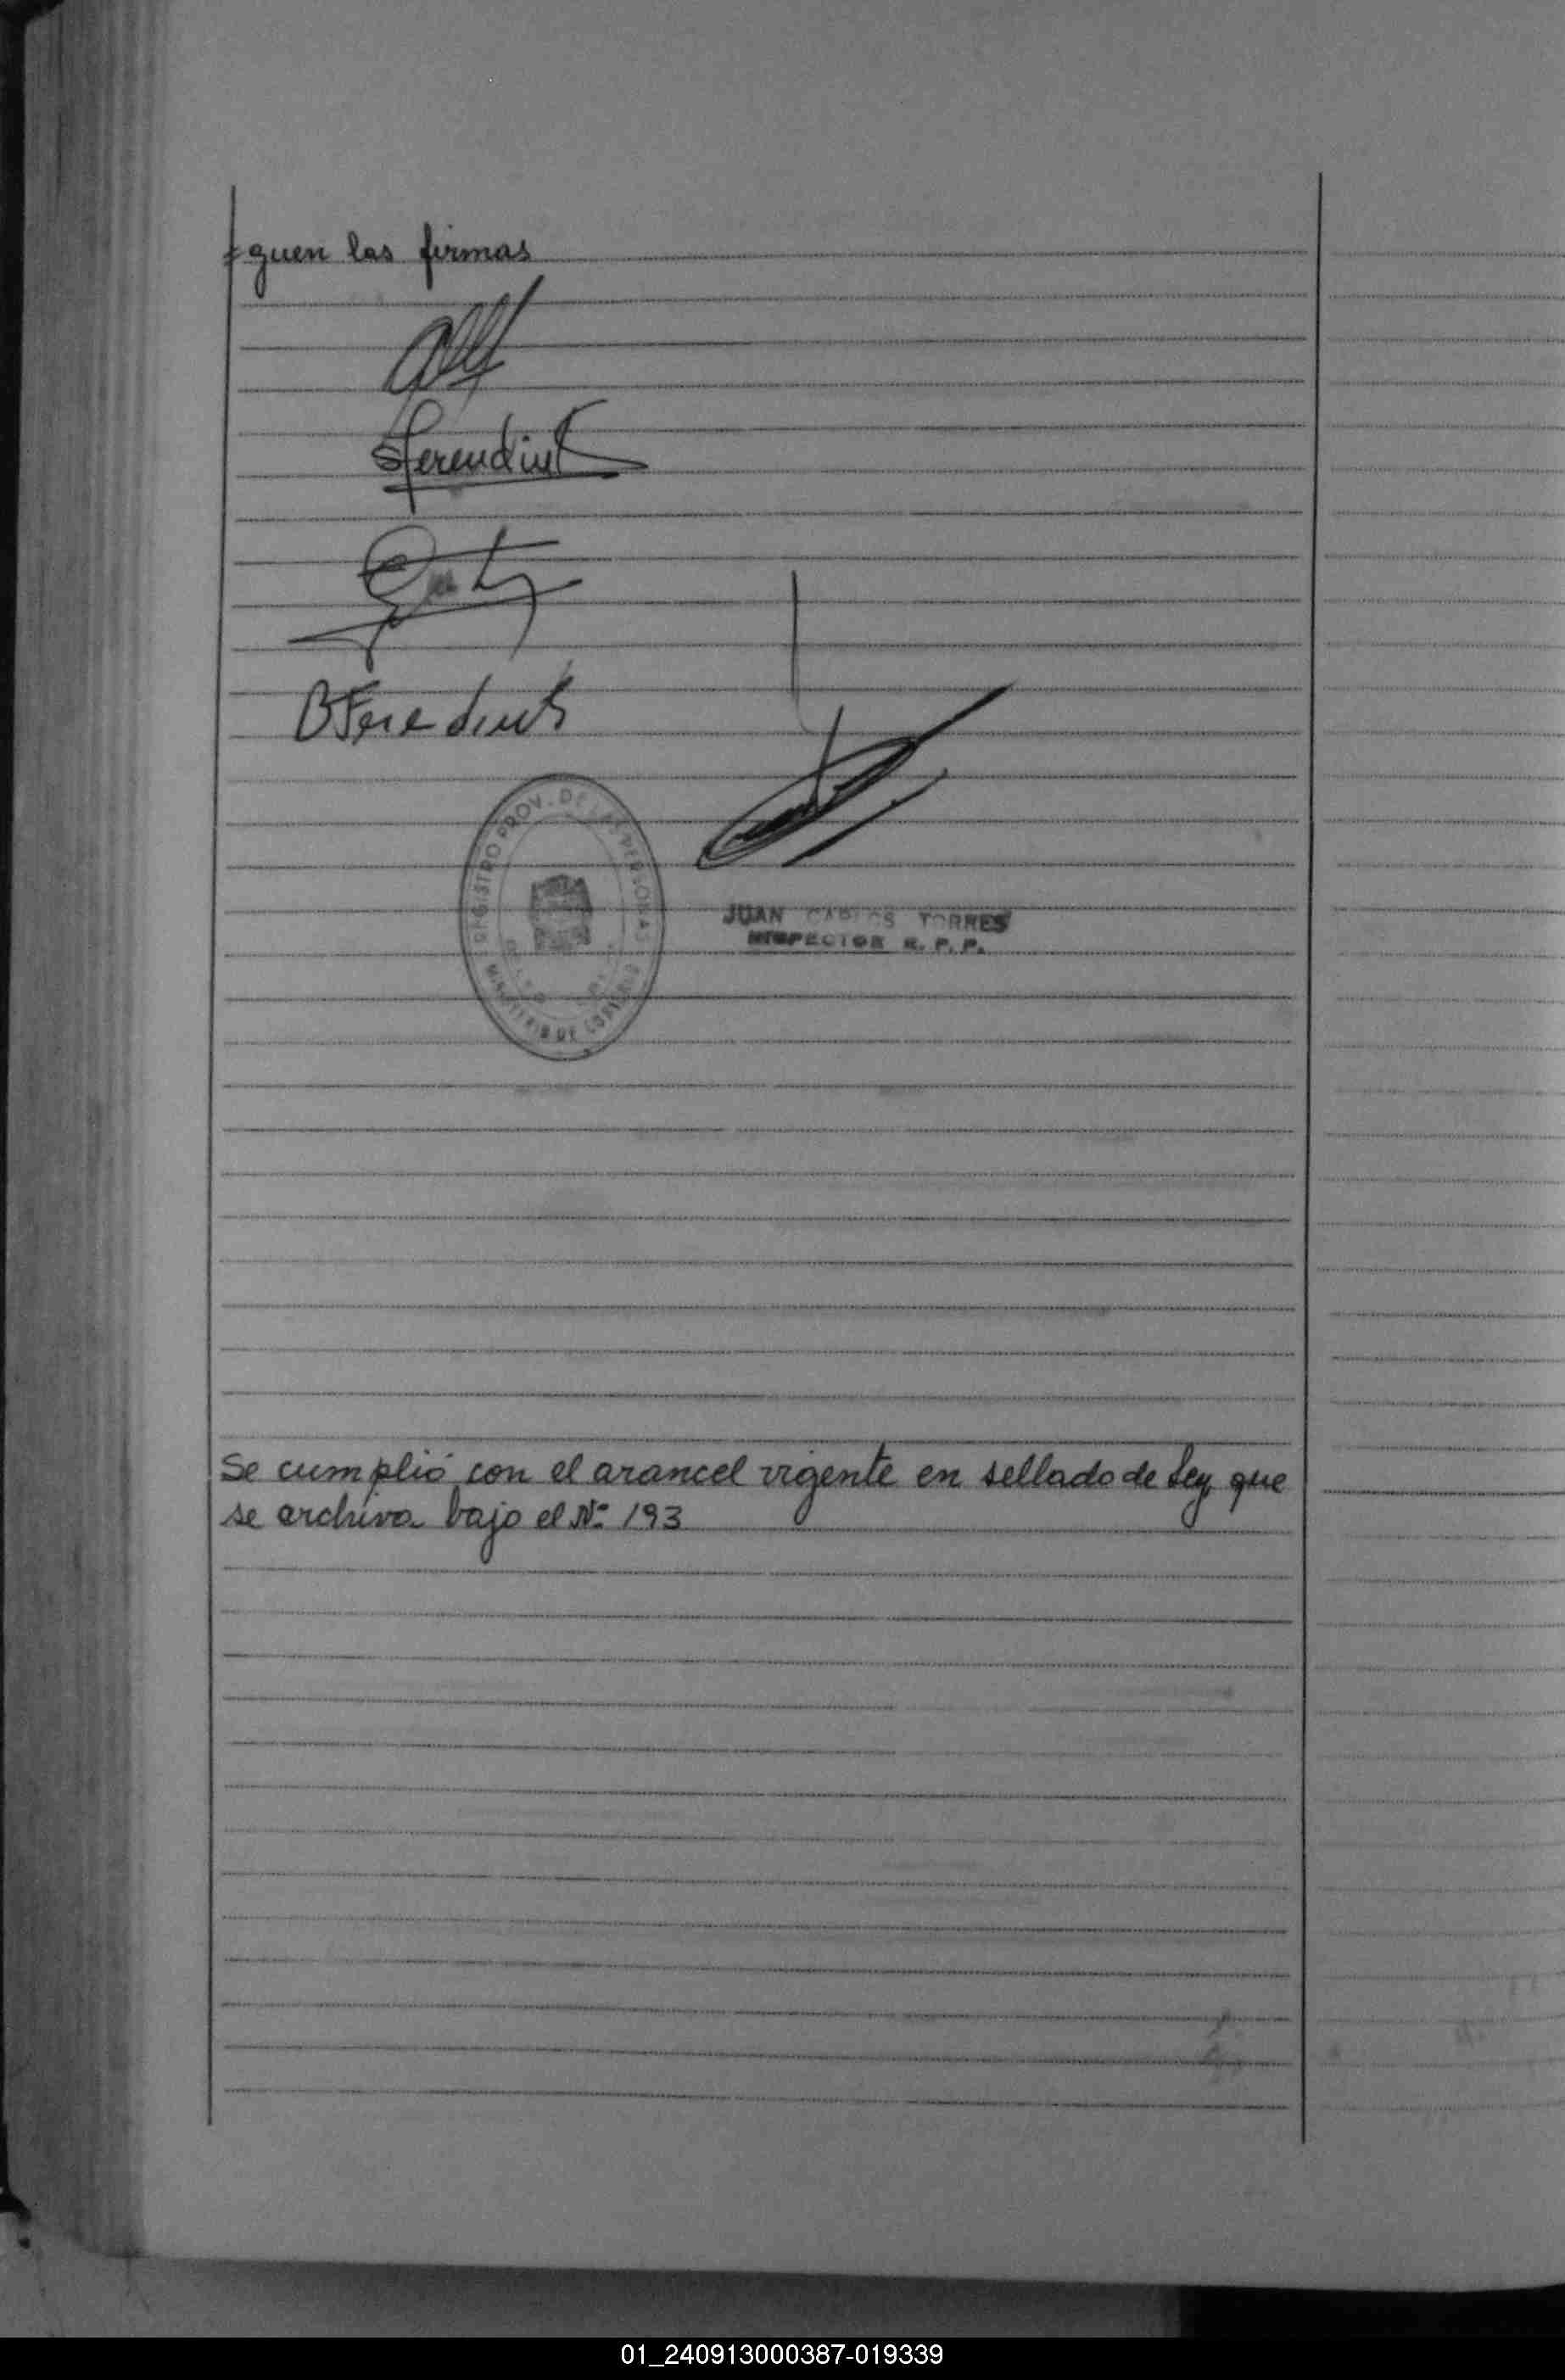 guen las firmas
REGISTRO PROV. DE LAS PERSONAS
MINISTERIO DE GOBIERNO
JUAN CARLOS TORRES
INSPECTOR R. P. P.
Se cumplió con el arancel vigente en sellado de Ley que
se archiva bajo el Nº 193
01_240913000387-019339